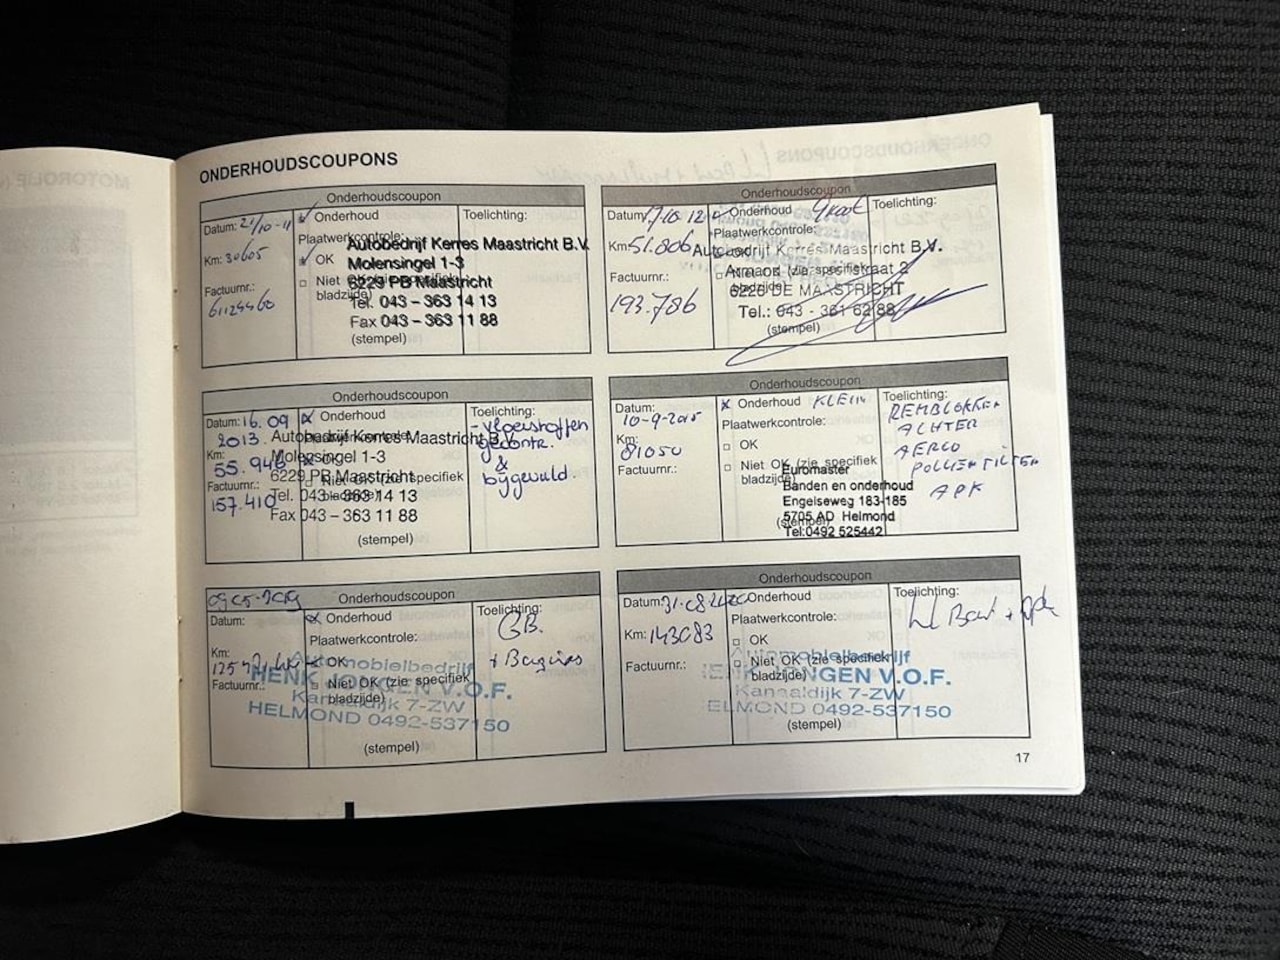 ONDERHOUDSCOUPONS
Onderhoudscoupon
Datum: 21/10-11
Onderhoud
Toelichting:
Plaatwerkcontrole:
Km: 30605
OK
Niet OK (zie specifiek
bladzijde)
Factuurnr.:
61124460
Autobedrijf Kerres Maastricht B.V.
Molensingel 1-3
6229 PB Maastricht
Tel. 043 – 363 14 13
Fax 043 – 363 11 88
(stempel)
Onderhoudscoupon
Datum: 17-10-12
Onderhoud Groot
Toelichting:
Plaatwerkcontrole:
Km: 51.806
OK
Niet OK (zie specifiek
Factuurnr.:
193.786
Autobedrijf Kerres Maastricht B.V.
6226 DE MAASTRICHT
Tel.: 043 - 361 62 88
(stempel)
Onderhoudscoupon
Datum: 16.09
2013.
Onderhoud
Toelichting:
- vloeistoffen
gecontr.
&
bijgevuld.
Km:
55.946
OK
Niet OK (zie specifiek
bladzijde)
Factuurnr.:
157.410
Autobedrijf Kerres Maastricht B.V.
Molensingel 1-3
6229 PB Maastricht
Tel. 043 – 363 14 13
Fax 043 – 363 11 88
(stempel)
Onderhoudscoupon
Datum:
10-9-2015
Onderhoud KLEIN
Toelichting:
REMBLOKKEN
ACHTER
AERCO
POLLENFILTER
APK
Plaatwerkcontrole:
Km:
81050
OK
Niet OK (zie specifiek
bladzijde)
Factuurnr.:
Euromaster
Banden en onderhoud
Engelseweg 183-185
5705 AD Helmond
Tel:0492 525442
(stempel)
Onderhoudscoupon
Datum:
Onderhoud
Toelichting:
GB.
+ Bougies
Plaatwerkcontrole:
Km:
OK
Niet OK (zie specifiek
bladzijde)
Factuurnr.:
Automobielbedrijf
HENK JONGEN V.O.F.
Kanaaldijk 7-ZW
HELMOND 0492-537150
(stempel)
Onderhoudscoupon
Datum: 31-08-2020
Onderhoud
Toelichting:
Plaatwerkcontrole:
Km: 143083
OK
Niet OK (zie specifiek
bladzijde)
Factuurnr.:
Automobielbedrijf
HENK JONGEN V.O.F.
Kanaaldijk 7-ZW
HELMOND 0492-537150
(stempel)
17